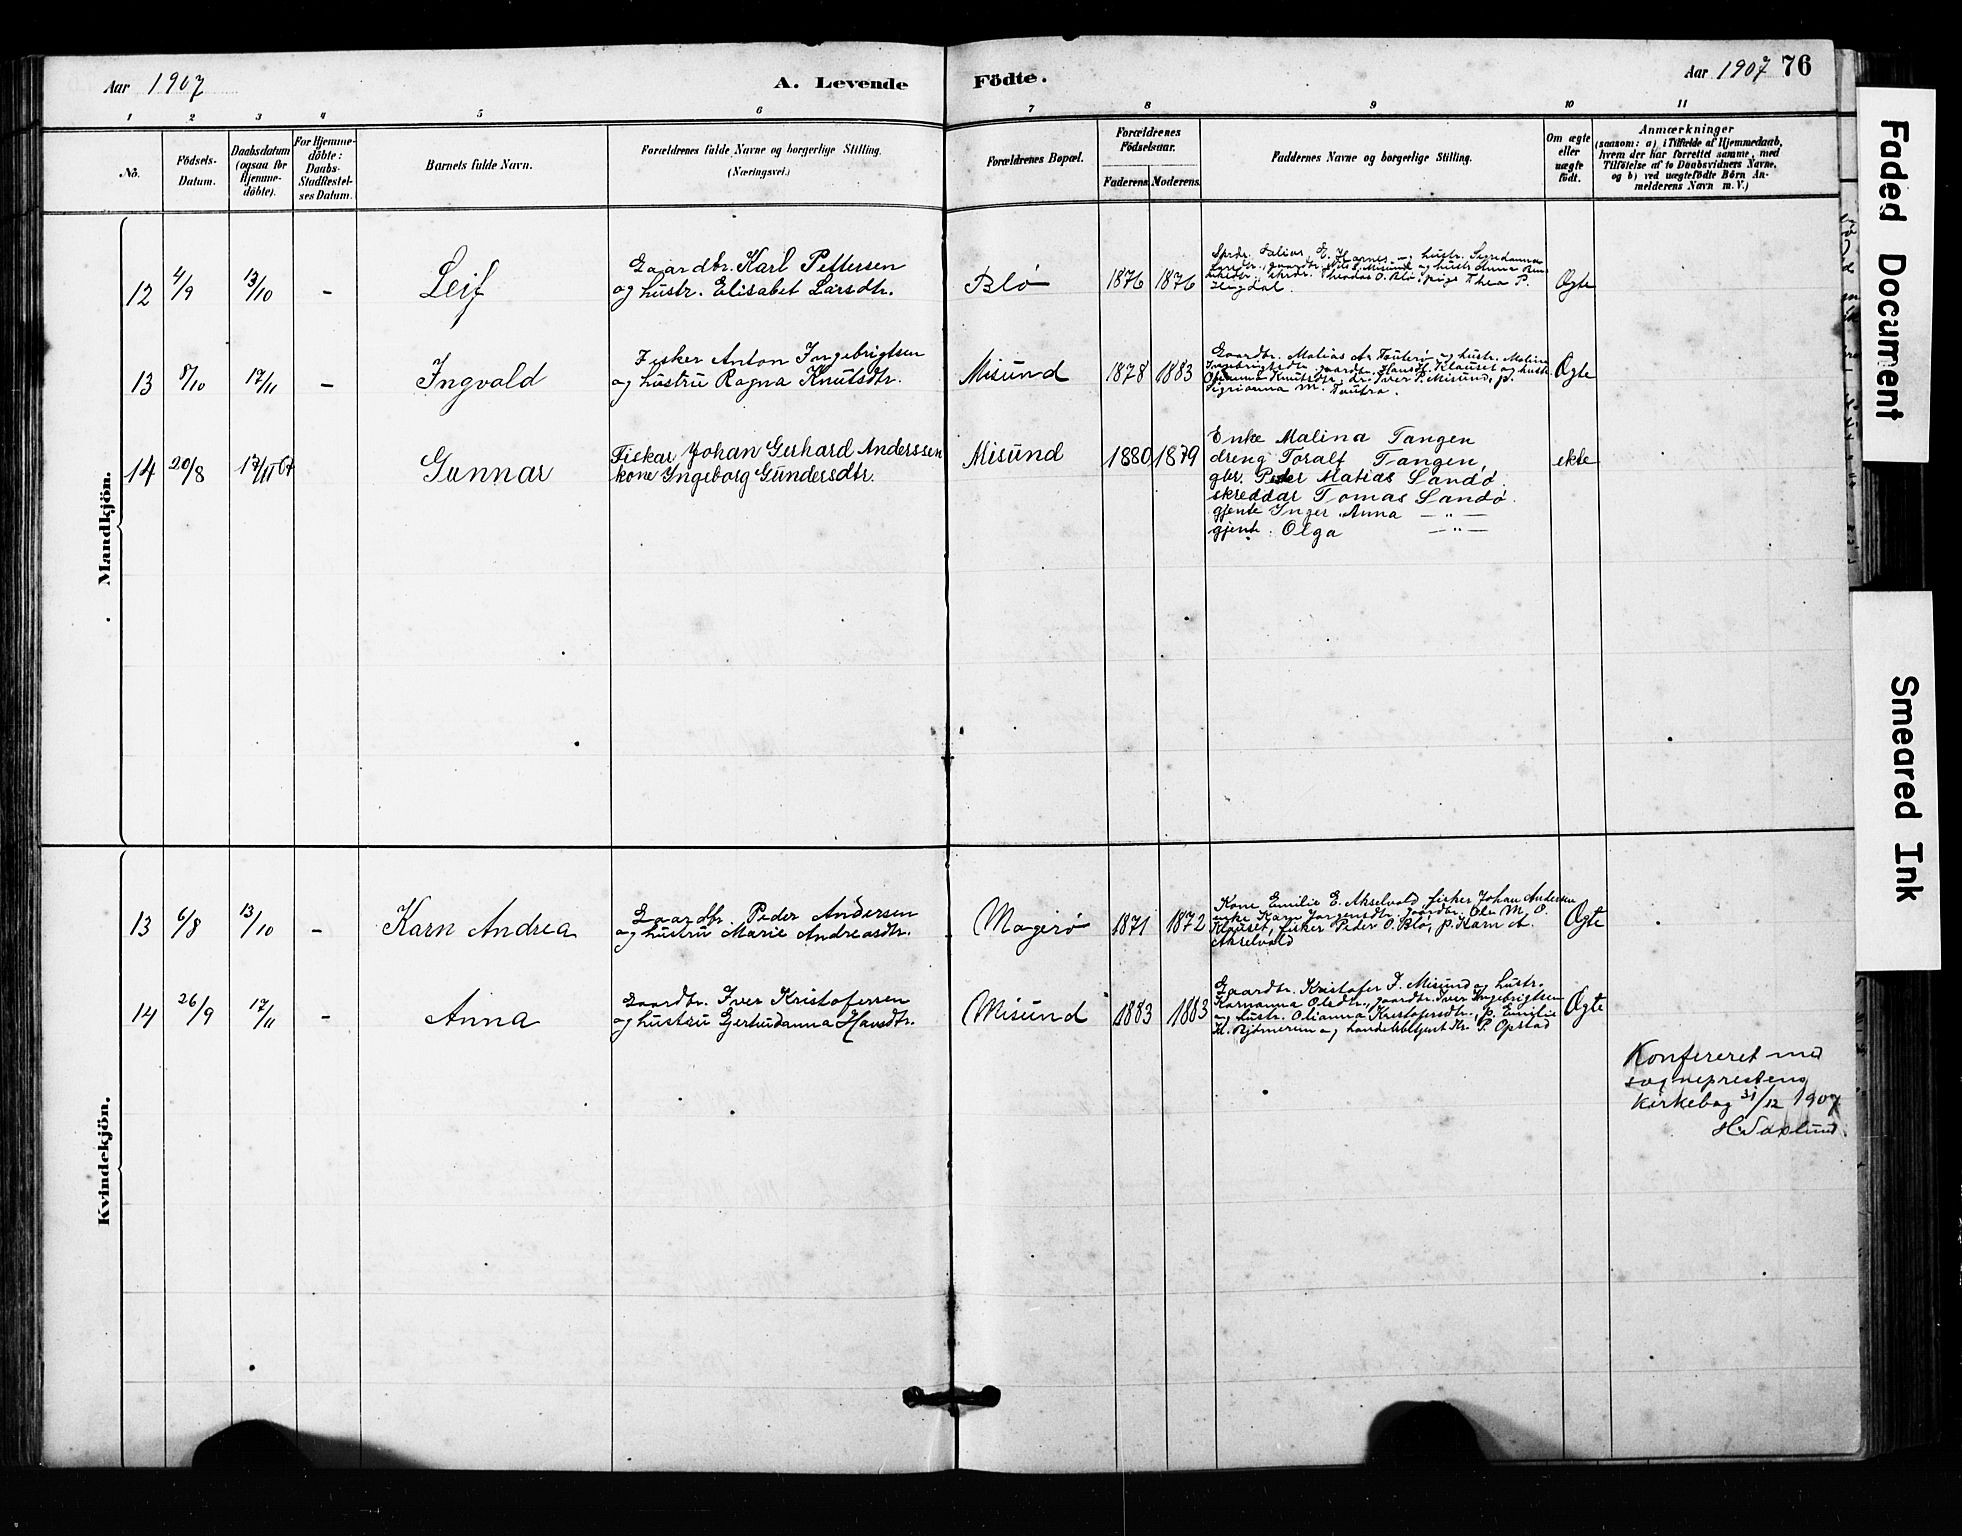 Aar 1907
A. Levende Födte.
Aar 1907 76
1 2 3 4 5 6 7 8 9 10 11
No.
Födsels-Datum.
Daabsdatum (ogsaa for Hjemme-döbte).
For Hjemme-döbte: Daabs-Stadfæstel-ses Datum.
Barnets fulde Navn.
Forældrenes fulde Navne og borgerlige Stilling. (Næringsvei.)
Forældrenes Bopæl.
Forældrenes Födselsaar.
Faderens. Moderens.
Faddernes Navne og borgerlige Stilling.
Om ægte eller uægte födt.
Anmærkninger
(saasom: a) i Tilfælde af Hjemmedaab,
hvem der har forrettet samme, med
Tilföielse af to Daabsvidners Navne,
og b) ved uægtefödte Börn An-
melderens Navn m. V.)
Mandkjön.
12 4/9 13/10 - Leif
Gaardbr. Karl Pettersen
og hustr. Elisabet Larsdtr.
Blø 1876 1876
Ogte
13 8/10 17/11 - Ingvald
Fisker Anton Ingebrigtsen
og hustru Ragna Knutsdtr.
Misund 1878 1883
Gaardbr. Matias A. og hustr. Malina
Ingebrigtsdtr., gaardbr. Klauset og hustr.
Knutsdtr., dr. Iver P. Misund, p.
M. Toutra.
Ogte
14 20/8 17/11 07 Gunnar
Fiskar Johan Gerhard Anderssen
kone Ingeborg Gundersdtr.
Misund 1880 1879
Enke Malina Tangen
dreng Toralf Tangen,
gbr. Peder Matias Sandø.
skreddar Tomas Sandø.
gjente Inger Anna — " —
gjent. Olga — " —
ekte
Kvindekjön.
13 6/8 13/10 - Karn Andrea
Gaardbr. Peder Andersen
og hustru Marie Andreasdtr.
Magerø 1871 1872
Kone Emilie E. Akselvold, fisker Johan Andersen
enke Karn Jørgensdtr., gaardbr. Ole M. O.
Klauset, fisker Peder O. Blø, p. Karn A.
Akselvold
Ogte
14 26/9 17/11 - Anna
Gaardbr. Iver Kristofersen
og hustru Gertrudanna Hansdtr.
Misund 1883 1883
Gaardbr. Kristofer I. Misund og hustr.
Karnanna Olsdtr., gaardbr. Iver Ingebrigtsen
og hustr. Olianna Kristofersdtr., p. Emilie
K. og handelsbetjent Kr. P. Opstad
Ogte
Konfereret med
sogneprestens
kirkebog 31/12 1907
Faded Document
Smeared Ink